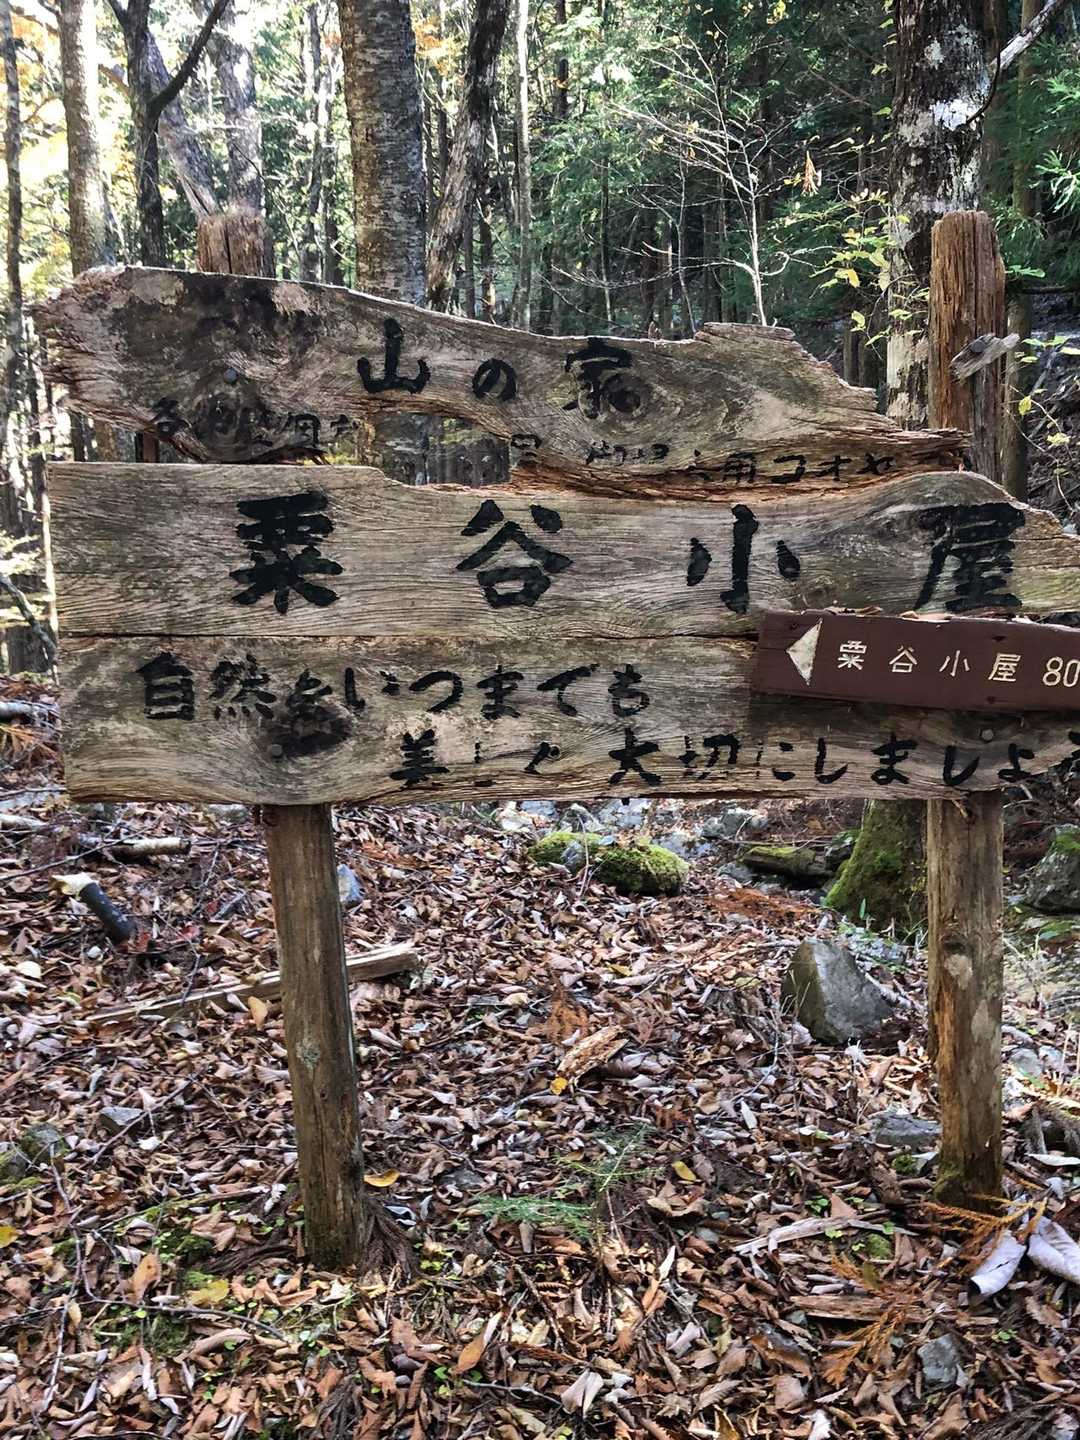 山の宿
粟谷小屋
自然をいつまでも
美しく大切にしましょう
粟谷小屋 80